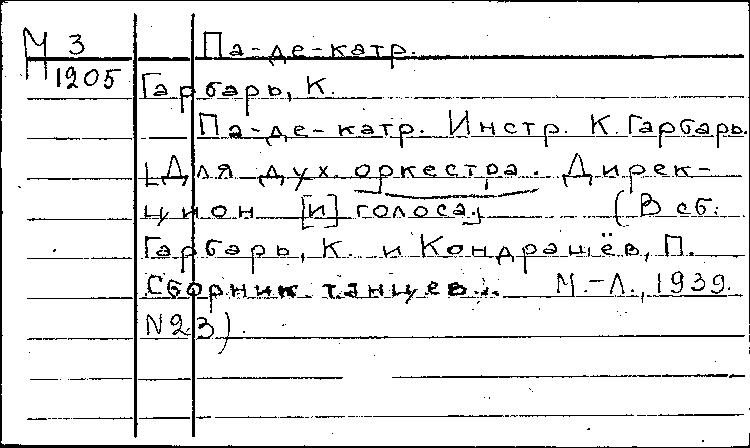 М 3 Па-де-катр.
М 1205
Гарбарь, К.
Па-де-катр. Инстр. К. Гарбарь.
[Для дух. оркестра. Дирек-
цион [и] голоса] (В сб:
Гарбарь, К. и Кондрашёв, П.
Сборник танцев... М.-Л., 1939.
N23).